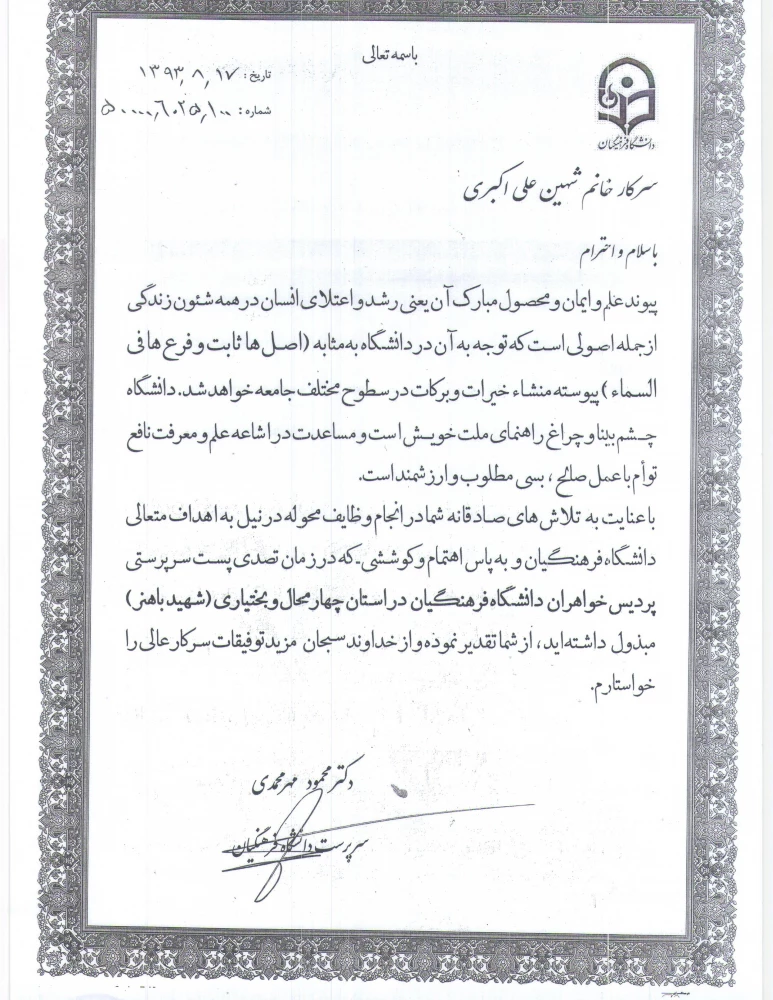 باسمه تعالی
تاریخ: ۱۳۹۳٫۸٫۱۷
شماره: ۵۰۰۰۰٫۶۰۲۵٫۱۰۰
دانشگاه فرهنگیان
سرکار خانم شهین علی اکبری
باسلام و احترام
پیوند علم و ایمان و محصول مبارک آن یعنی رشد و اعتلای انسان در همه شئون زندگی
از جمله اصولی است که توجه به آن در دانشگاه به مثابه (اصل ها ثابت و فرع ها فی
السماء) پیوسته منشاء خیرات و برکات در سطوح مختلف جامعه خواهد شد. دانشگاه
چشم بینا و چراغ راهنمای ملت خویش است و مساعدت در اشاعه علم و معرفت نافع
توأم با عمل صالح ، بسی مطلوب و ارزشمند است.
با عنایت به تلاش های صادقانه شما در انجام وظایف محوله در نیل به اهداف متعالی
دانشگاه فرهنگیان و به پاس اهتمام و کوششی ـ که در زمان تصدی پست سرپرستی
پردیس خواهران دانشگاه فرهنگیان در استان چهارمحال و بختیاری (شهید باهنر)
مبذول داشته‌اید ، از شما تقدیر نموده و از خداوند سبحان مزید توفیقات سرکار عالی را
خواستارم.
دکتر محمود مهرمحمدی
سرپرست دانشگاه فرهنگیان